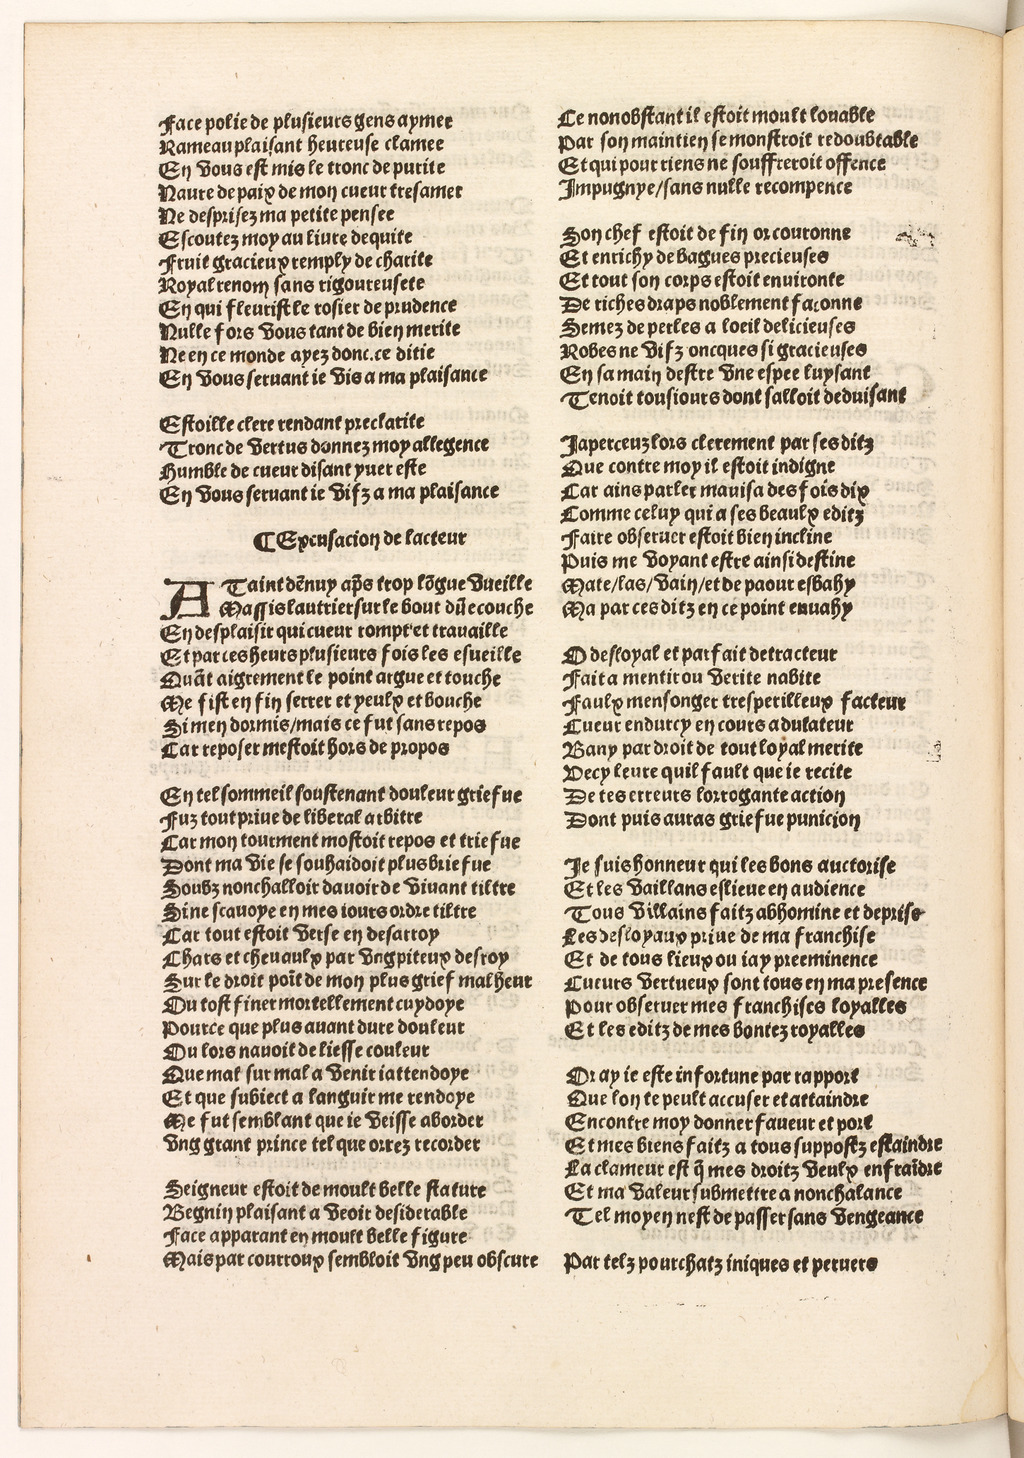 Face polie de plusieurs gens aymee
Rameau plaisant heureuse clamee
En vous est mis le tronc de purite
Navre de paix de mon cueur tresamer
Ne desprisez ma petite pensee
Escoutez moy au livre dequite
Fruit gracieux remply de charite
Royal renom sans rigoureusete
En qui fleurist le rosier de prudence
Nulle fors vous tant de bien merite
Ne en ce monde ayez donc.ce ditie
En vous servant ie vis a ma plaisance
Estoille clere rendant preclarite
Tronc de vertus donnez moy allegence
Humble de cueur disant yver este
En vous servant ie vifz a ma plaisance
¶Excusacion de lacteur
ATaint dēnuy aps trop lōgue vueille
Massis lautrier sur le bout dūe couche
En desplaisir qui cueur rompt et travaille
Et par ces heurs plusieurs fois les esueille
Quāt aigrement le point argue et touche
Me fist en fin serrer et yeulx et bouche
Si men dormis/mais ce fut sans repos
Car reposer mestoit hors de propos
En tel sommeil soustenant douleur griefue
Fuz tout priue de liberal arbitre
Car mon tourment mostoit repos et triefue
Dont ma vie se souhaidoit plus briefue
Soubz nonchalloir dauoir de vivant tiltre
Sine scavoye en mes iours ordre tiltre
Car tout estoit verse en desarroy
Chars et chevaulx par ung piteux desroy
Sur le droit poīt de mon plus grief malheur
Ou tost finer mortellement cuydoye
Pource que plus avant dure douleur
Ou lors navoit de liesse couleur
Que mal sur mal a venir iattendoye
Et que subiect a languir me rendoye
Me fut semblant que ie veisse aborder
Ung grant prince tel que orrez recorder
Seigneur estoit de moult belle stature
Begnin plaisant a veoir desiderable
Face apparant en moult belle figure
Mais par courroux sembloit ung peu obscure
Ce nonobstant il estoit moult louable
Par son maintien se monstroit redoubtable
Et qui pour riens ne souffreroit offence
Impugnye/sans nulle recompence
Son chef estoit de fin or couronne
Et enrichy de bagues precieuses
Et tout son corps estoit environne
De riches draps noblement faconne
Semez de perles a loeil delicieuses
Robes ne vifz oncques si gracieuses
En sa main destre une espee luysant
Tenoit tousiours dont salloit deduisant
Japerceuz lors clerement par ses ditz
Que contre moy il estoit indigne
Car ains parler mavisa des fois dix
Comme celuy qui a ses beaulx editz
Faire observer estoit bien incline
Puis me voyant estre ainsi destine
Mate/las/vain/et de paour esbahy
Ma par ces ditz en ce point envahy
O desloyal et parfait detracteur
Fait a mentir ou verite habite
Faulx mensonger tresperilleux facteur
Cueur endurcy en cours adulateur
Bany par droit de tout loyal merite
Vecy leure quil fault que ie recite
De tes erreurs lorrogante action
Dont puis auras griefue punicion
Je suis honneur qui les bons auctorise
Et les vaillans eslieue en audience
Tous villains faitz abhomine et deprise
Les desloyaux prive de ma franchise
Et de tous lieux ou iay preeminence
Cueurs vertueux sont tous en ma presence
Pour observer mes franchises loyalles
Et les editz de mes bontez royalles
Or ay ie este infortune par rapport
Que lon te peult accuser et attaindre
Encontre moy donner faveur et port
Et mes biens faitz a tous suppostz estaindre
La clameur est q̄ mes droitz veulx enfraīdre
Et ma valeur submettre a nonchalance
Tel moyen nest de passer sans vengeance
Par telz pourchatz iniques et pervers